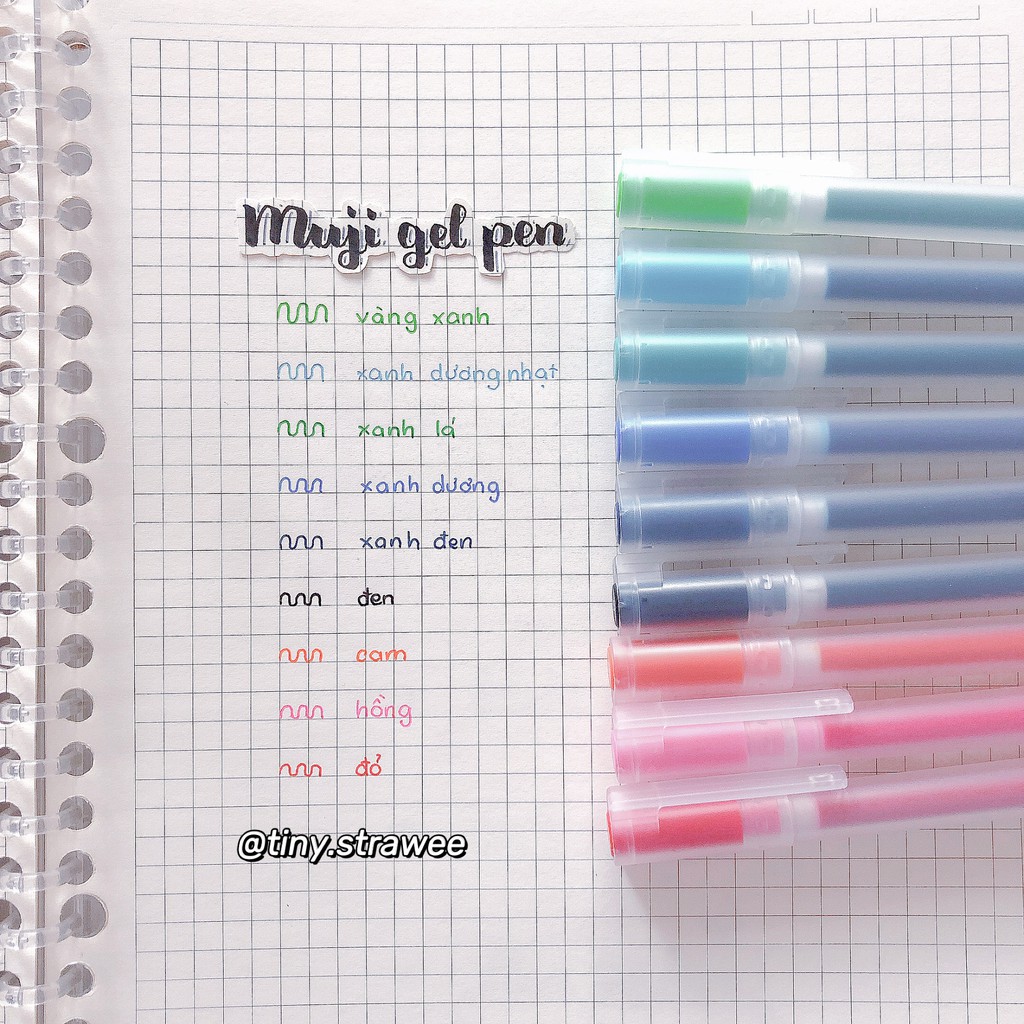 Muji gel pen
vàng xanh
xanh dương nhạt
xanh lá
xanh dương
xanh đen
đen
cam
hồng
đỏ
@tiny.strawee